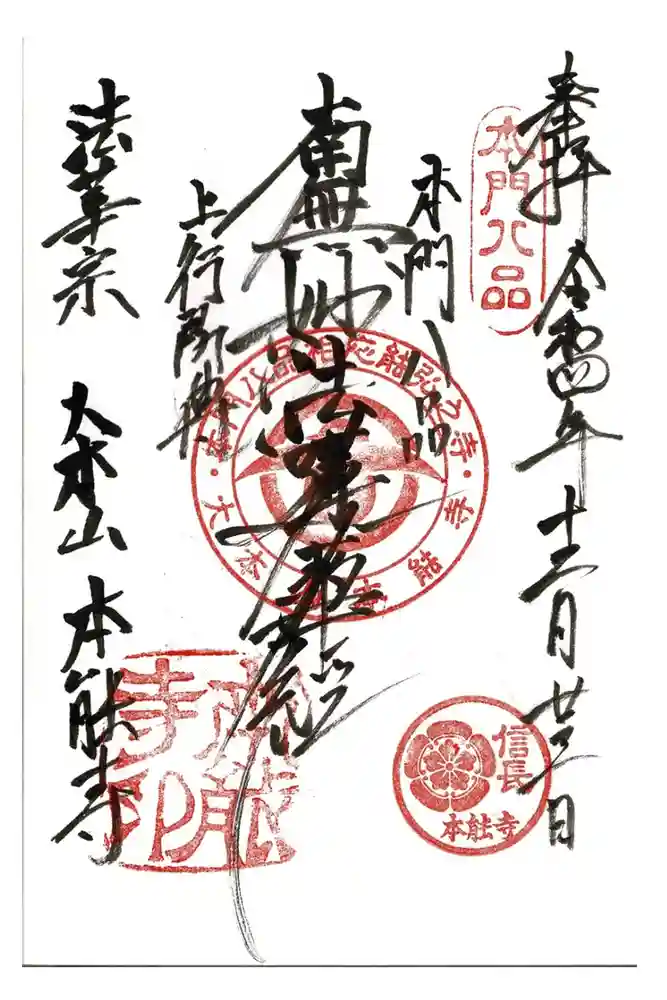 奉拝 令和四年 十二月 廿三日
本門八品
本門八品
南無妙法蓮華経
上行所傳
法華宗 大本山 本能寺
信長
本能寺
本能寺印